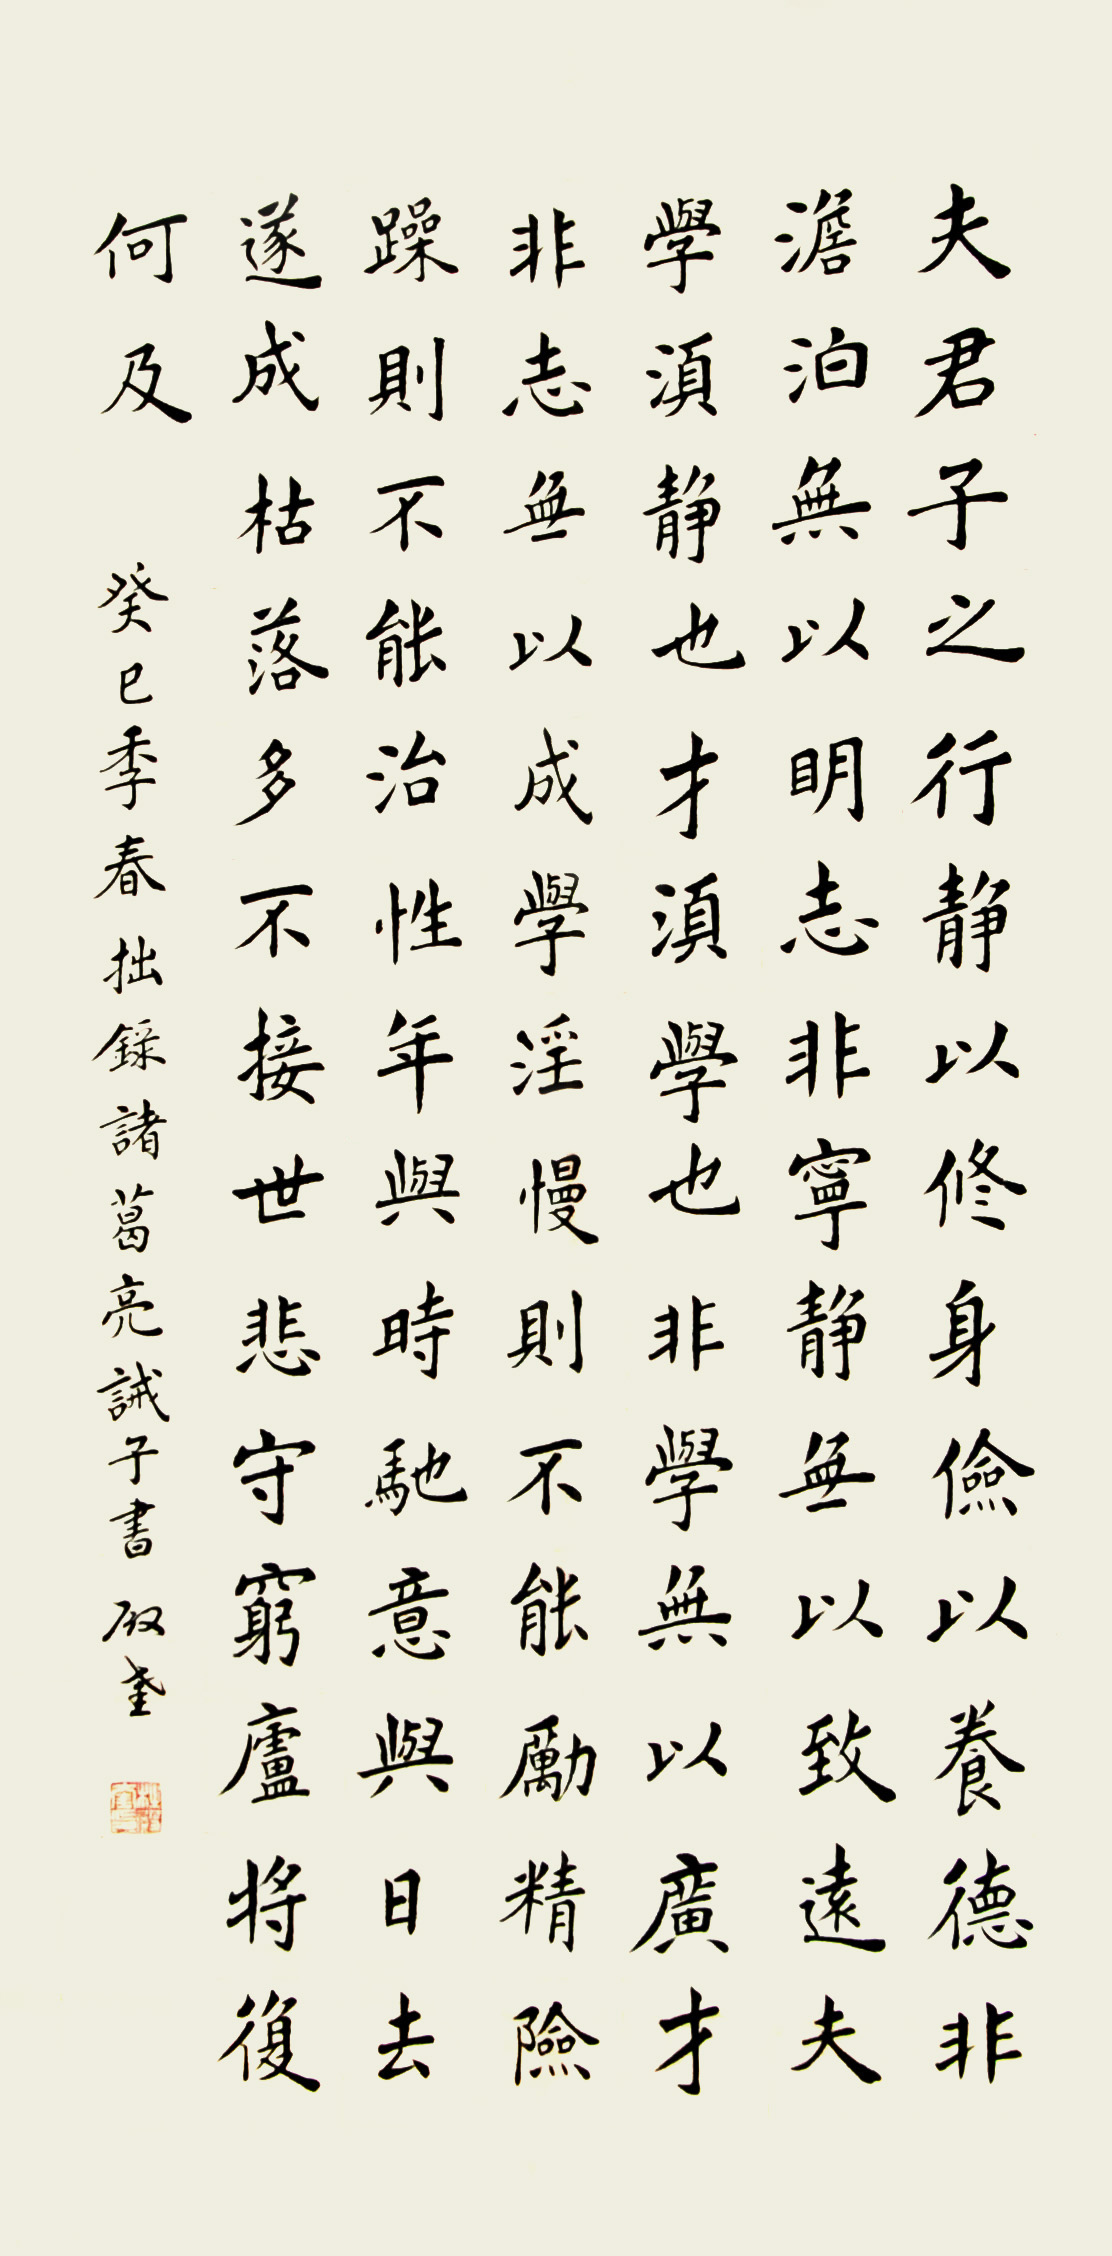 夫君子之行静以修身儉以養德非
澹泊無以明志非寧静無以致遠夫
學湏静也才湏學也非學無以廣才
非志無以成學淫慢則不能勵精險
躁則不能治性年與時馳意與日去
遂成枯落多不接世悲守窮廬将復
何及
癸巳季春 拙錄諸葛亮誡子書